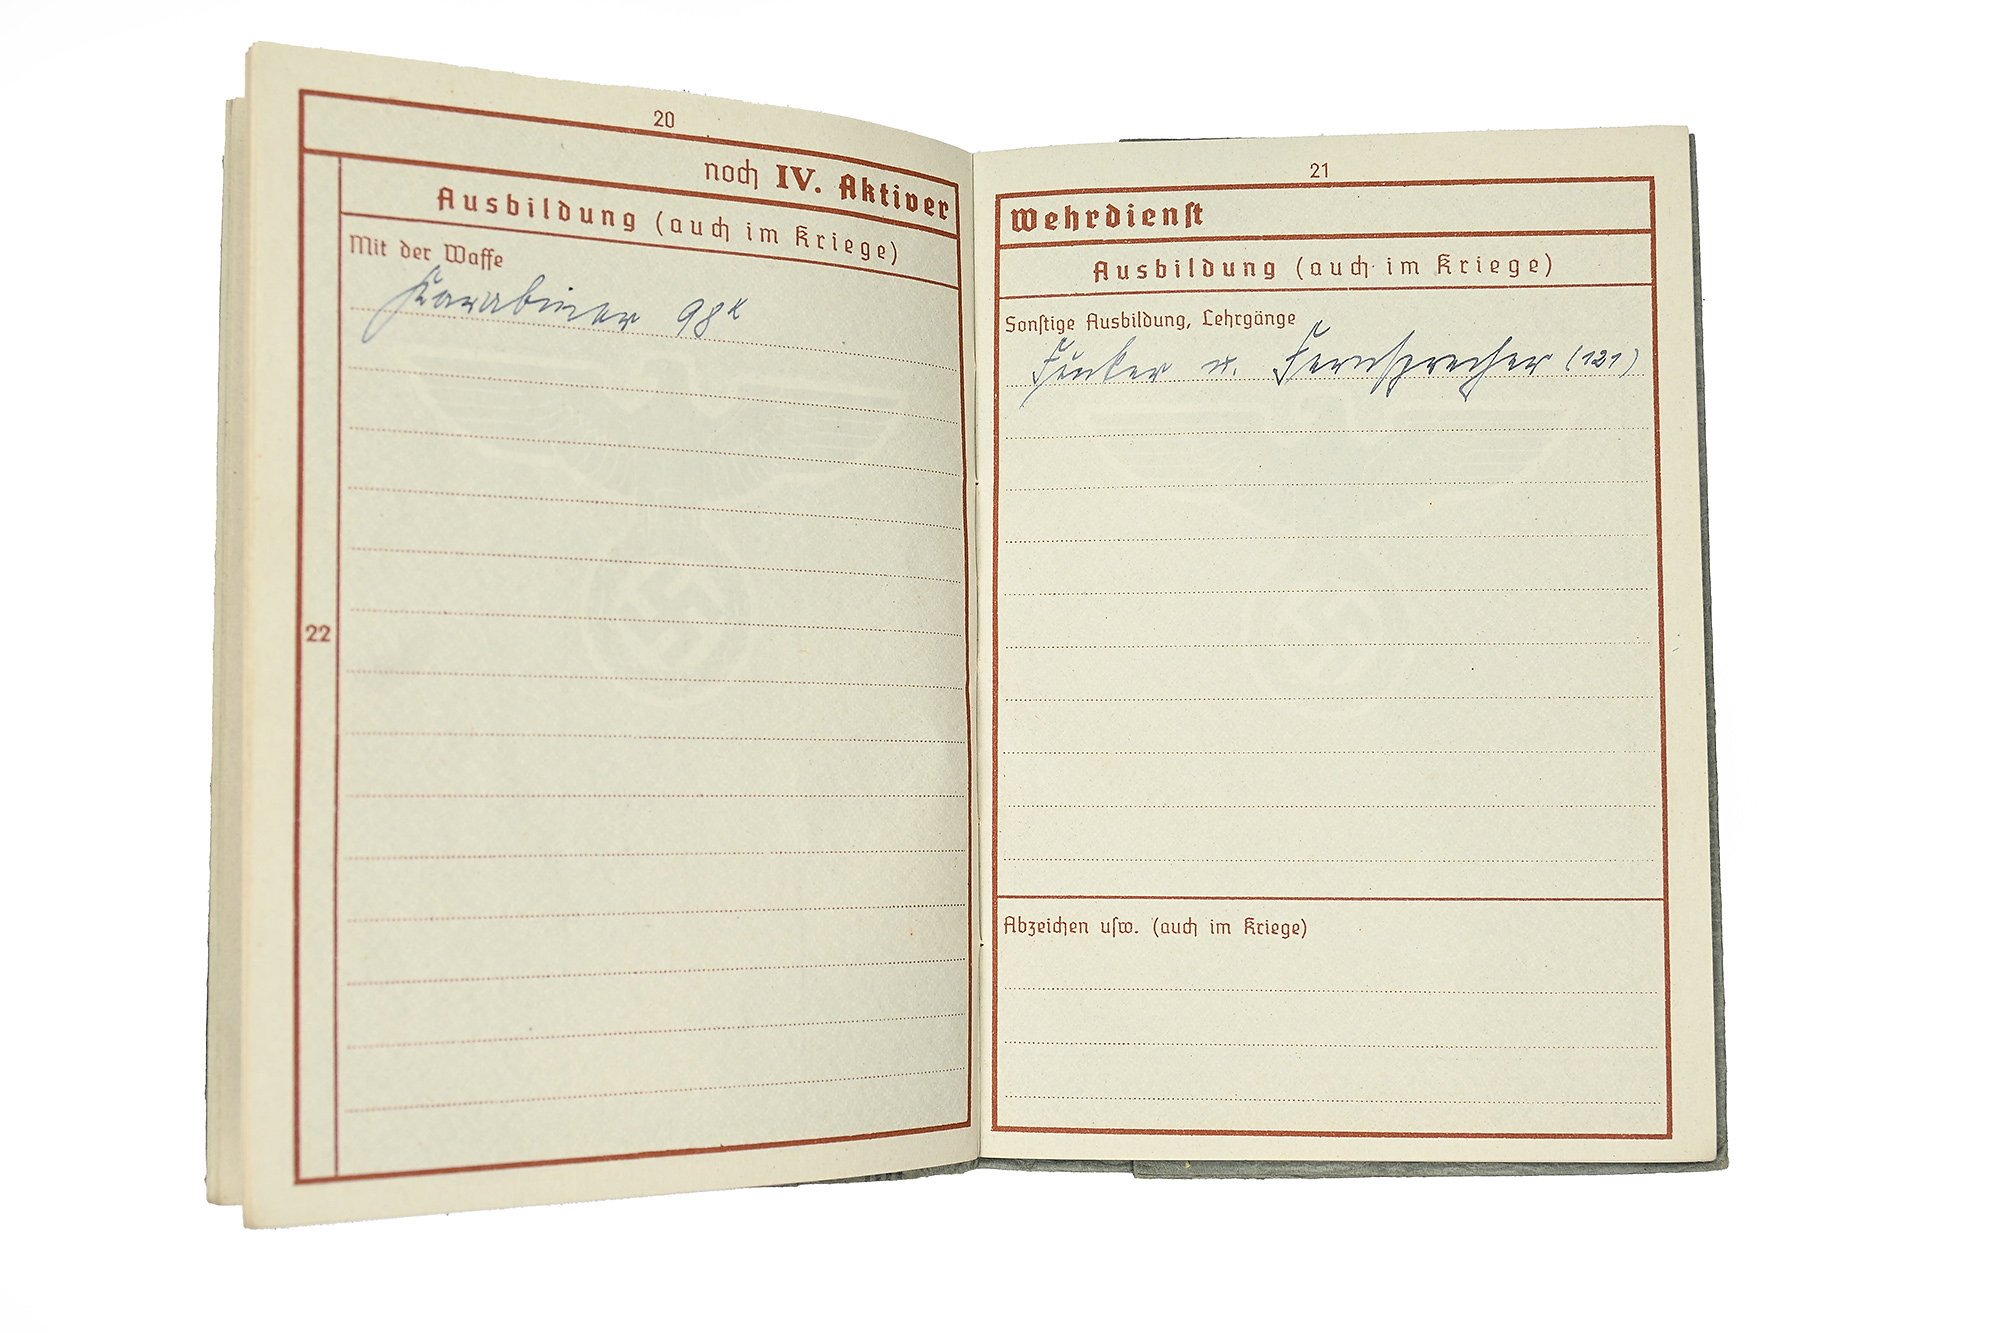 20
noch IV. Aktiver
Ausbildung (auch im Kriege)
Mit der Waffe
Karabiner 98k
22
21
Wehrdienſt
Ausbildung (auch im Kriege)
Sonſtige Ausbildung, Lehrgänge
Funker u. Fernsprecher (121)
Abzeichen uſw. (auch im Kriege)